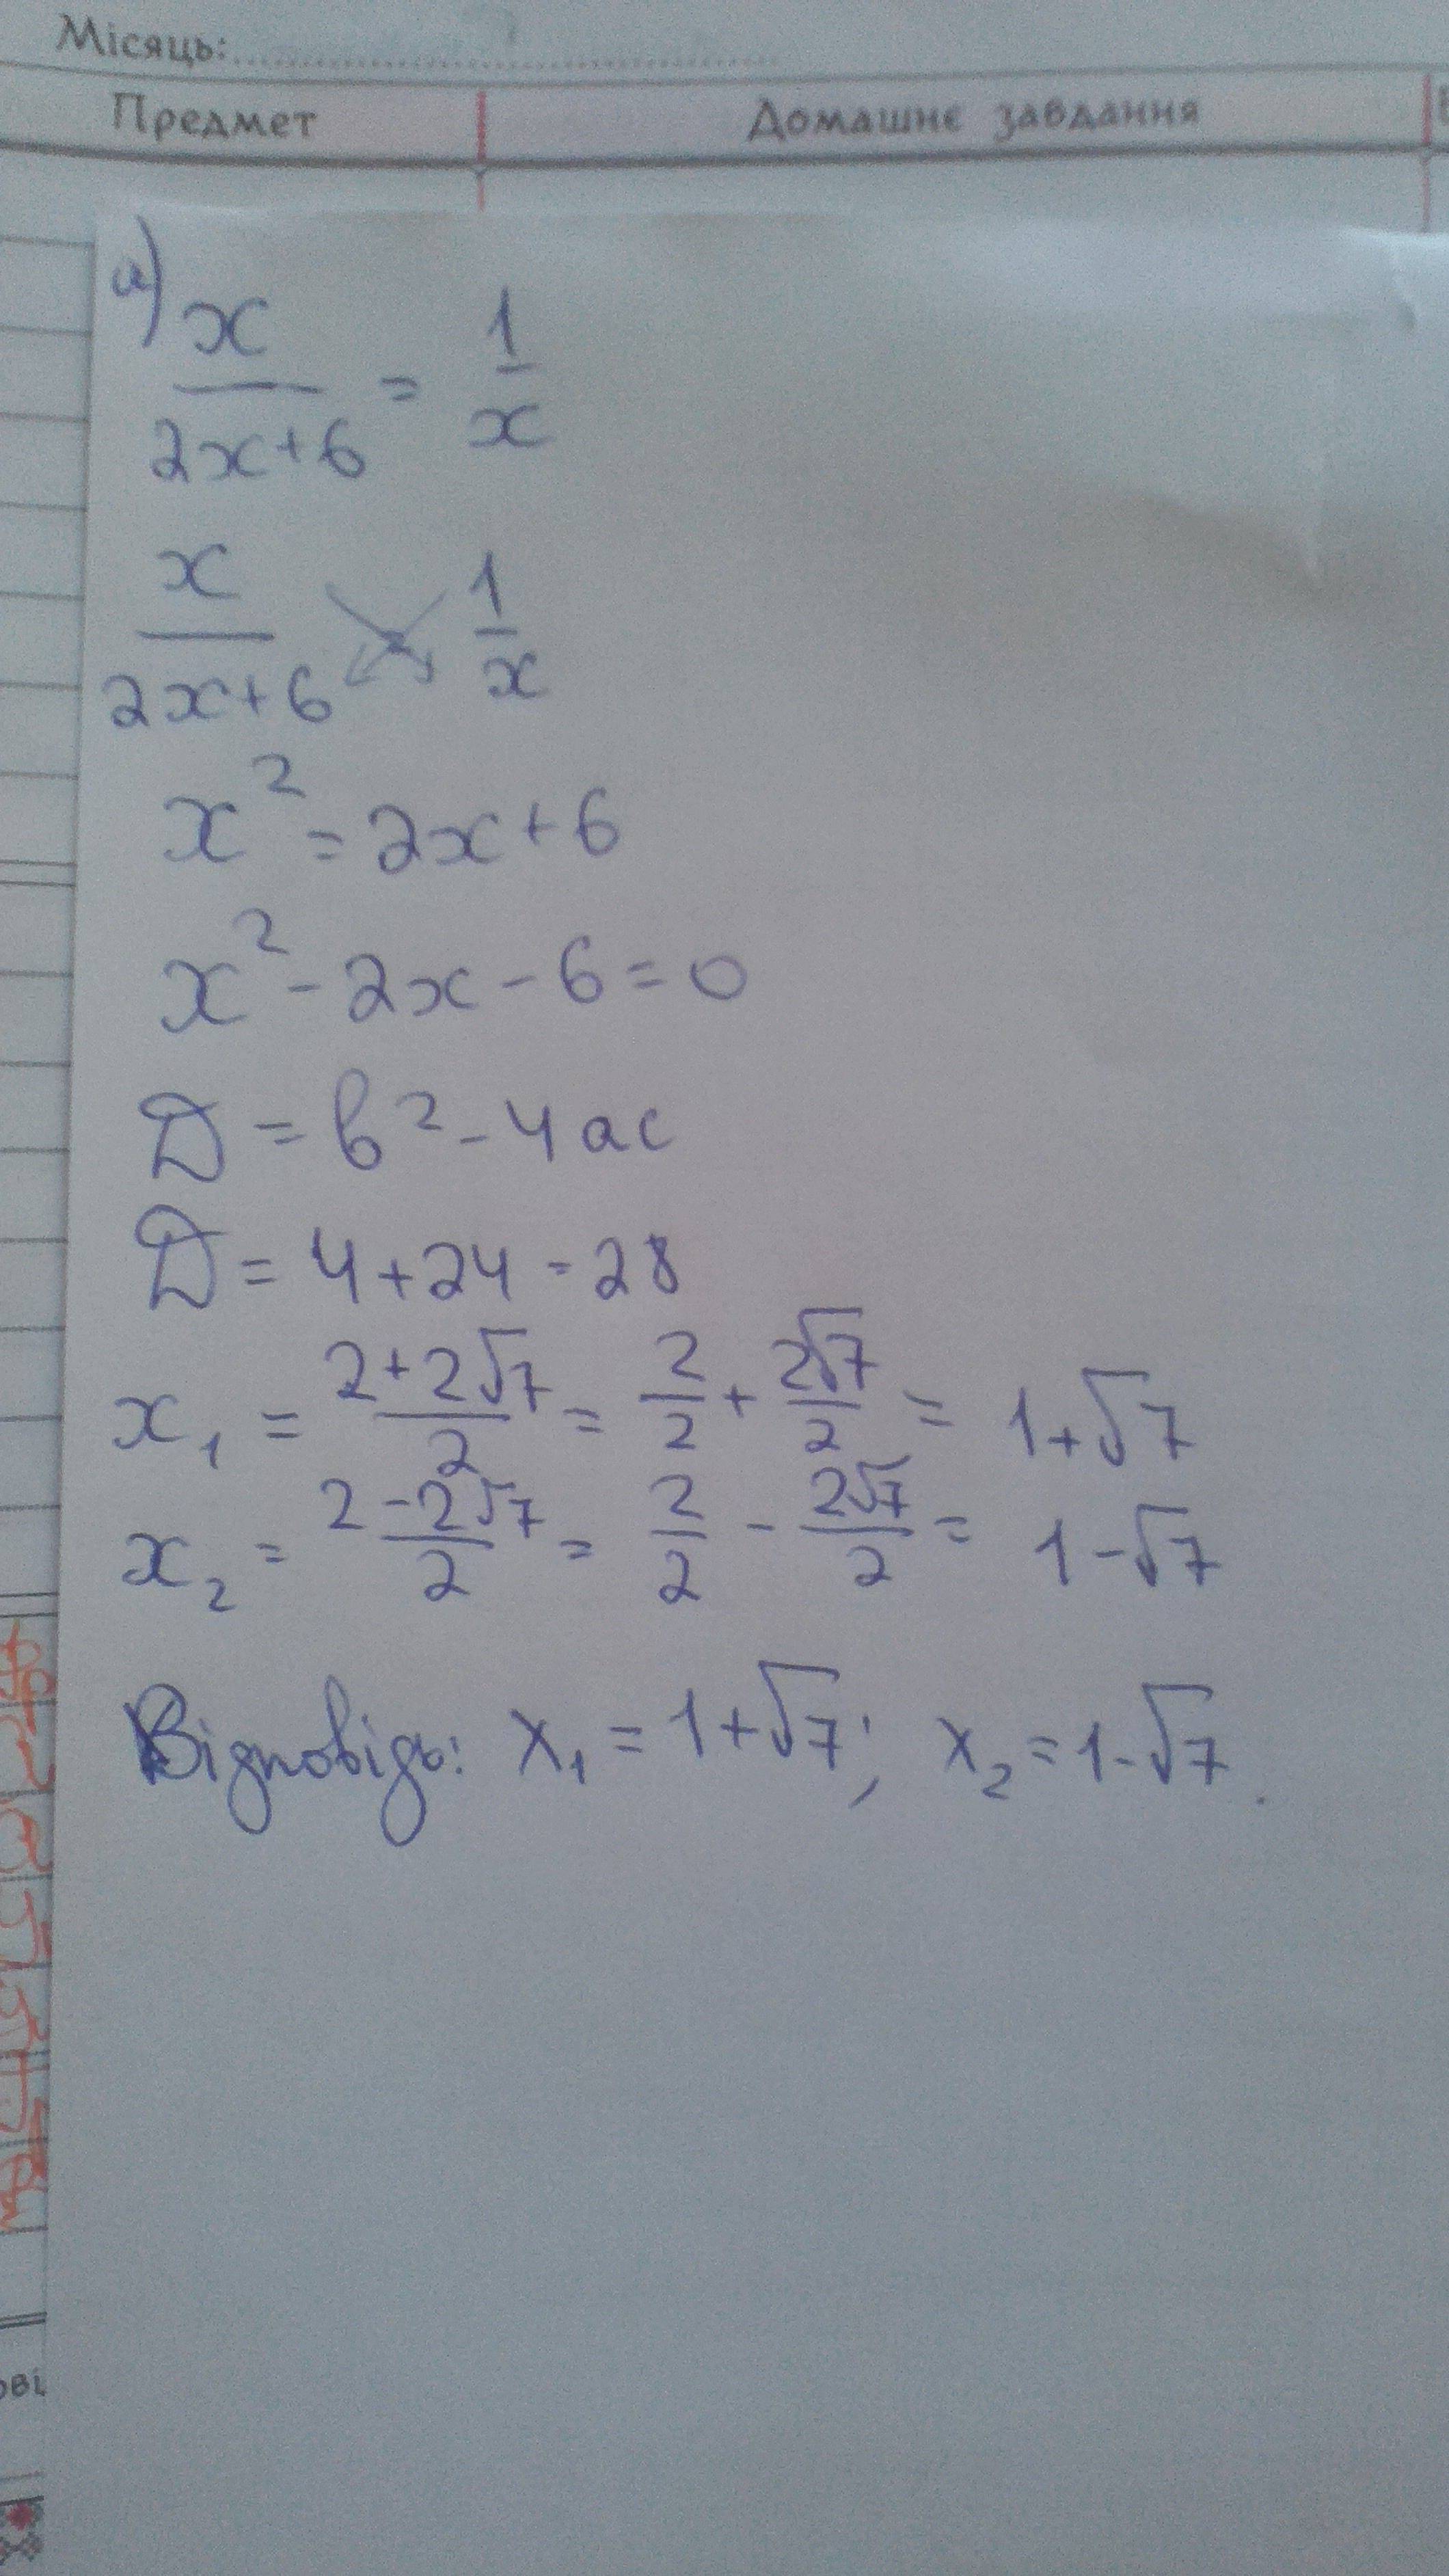 Місяць:
Предмет Домашнє завдання
а) x/(2x+6) = 1/x
x/(2x+6) 1/x
x² = 2x+6
x² - 2x - 6 = 0
D = b² - 4ac
D = 4+24 = 28
x₁ = (2+2√7)/2 = 2/2 + 2√7/2 = 1+√7
x₂ = (2-2√7)/2 = 2/2 - 2√7/2 = 1-√7
Відповідь: x₁ = 1+√7; x₂ = 1-√7.
ові